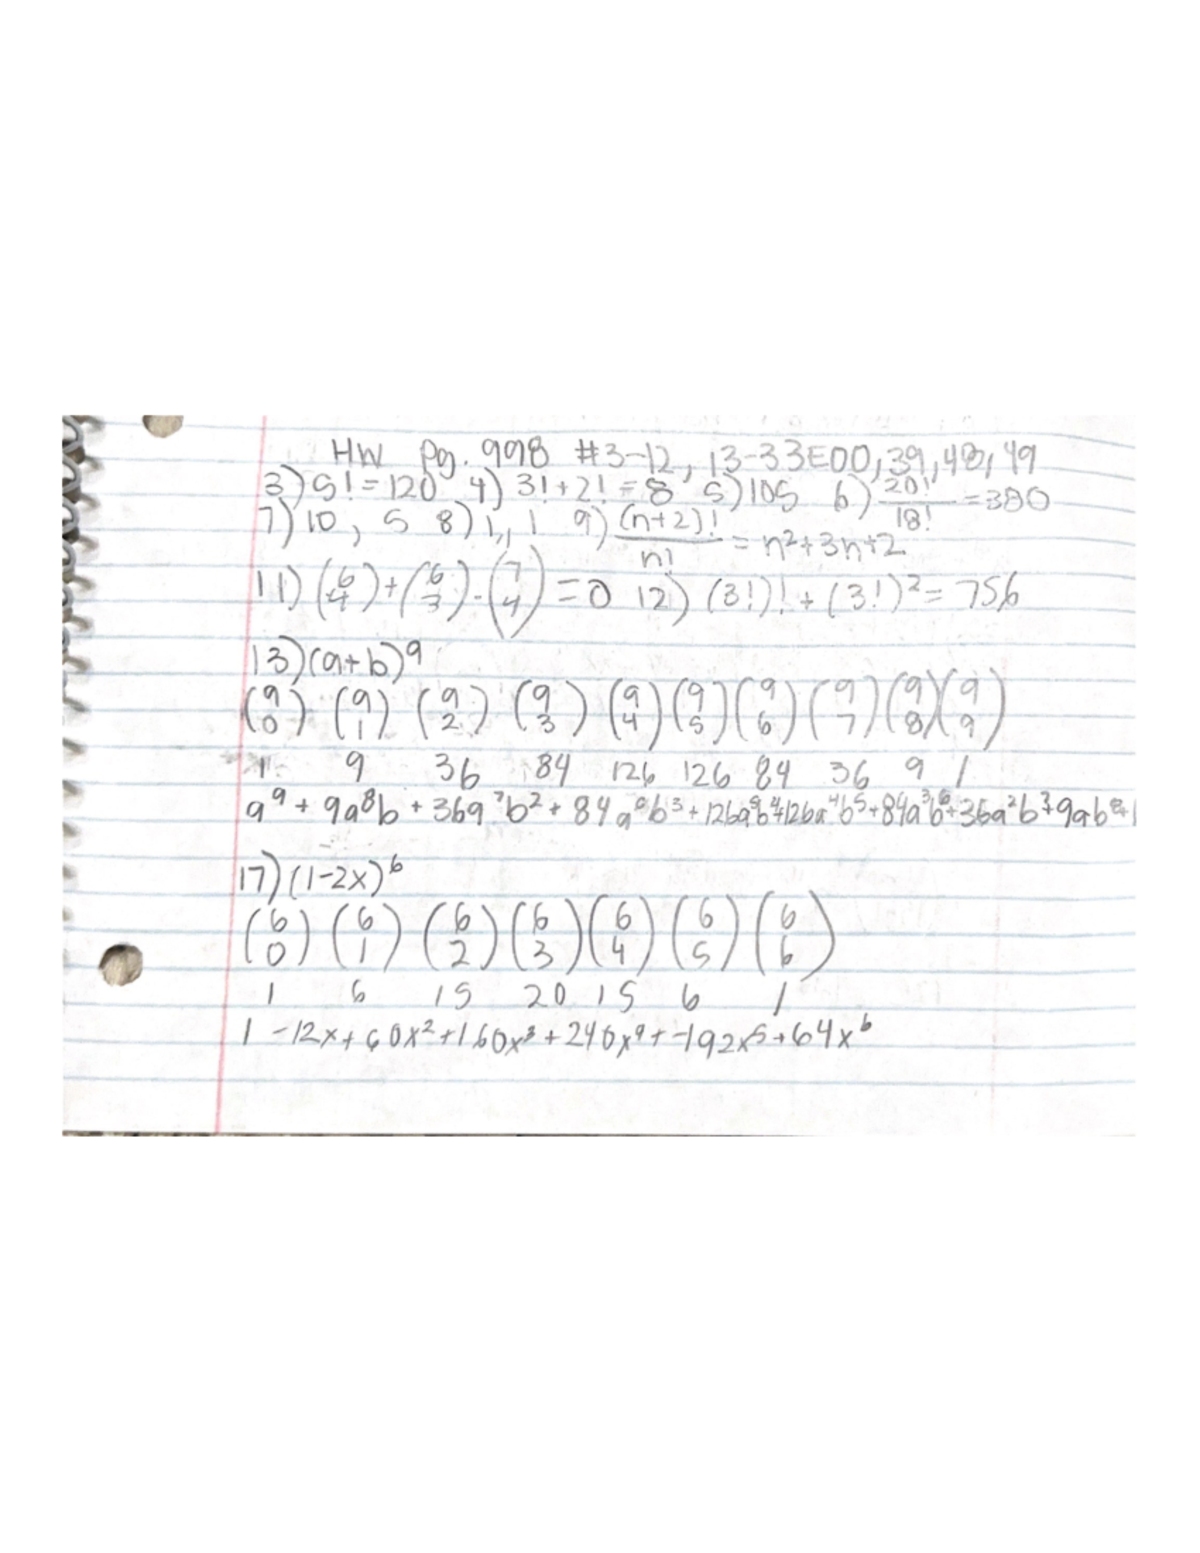 HW Pg. 998 #3-12, 13-33EOO, 39, 48, 49
3) 5! = 120 4) 3! + 2! = 8 5) 105 6) 20!/18! = 380
7) 10, 5 8) 1, 1 9) (n+2)!/n! = n²+3n+2
11) (6 4) + (6 3) - (7 4) = 0 12) (3!)! + (3!)² = 756
13) (a+b)⁹
(9 0) (9 1) (9 2) (9 3) (9 4) (9 5) (9 6) (9 7) (9 8) (9 9)
1 9 36 84 126 126 84 36 9 1
a⁹ + 9a⁸b + 36a⁷b² + 84a⁶b³ + 126a⁵b⁴ + 126a⁴b⁵ + 84a³b⁶ + 36a²b⁷ + 9ab⁸ +
17) (1-2x)⁶
(6 0) (6 1) (6 2) (6 3) (6 4) (6 5) (6 6)
1 6 15 20 15 6 1
1 -12x + 60x² + 160x³ + 240x⁴ + -192x⁵ + 64x⁶